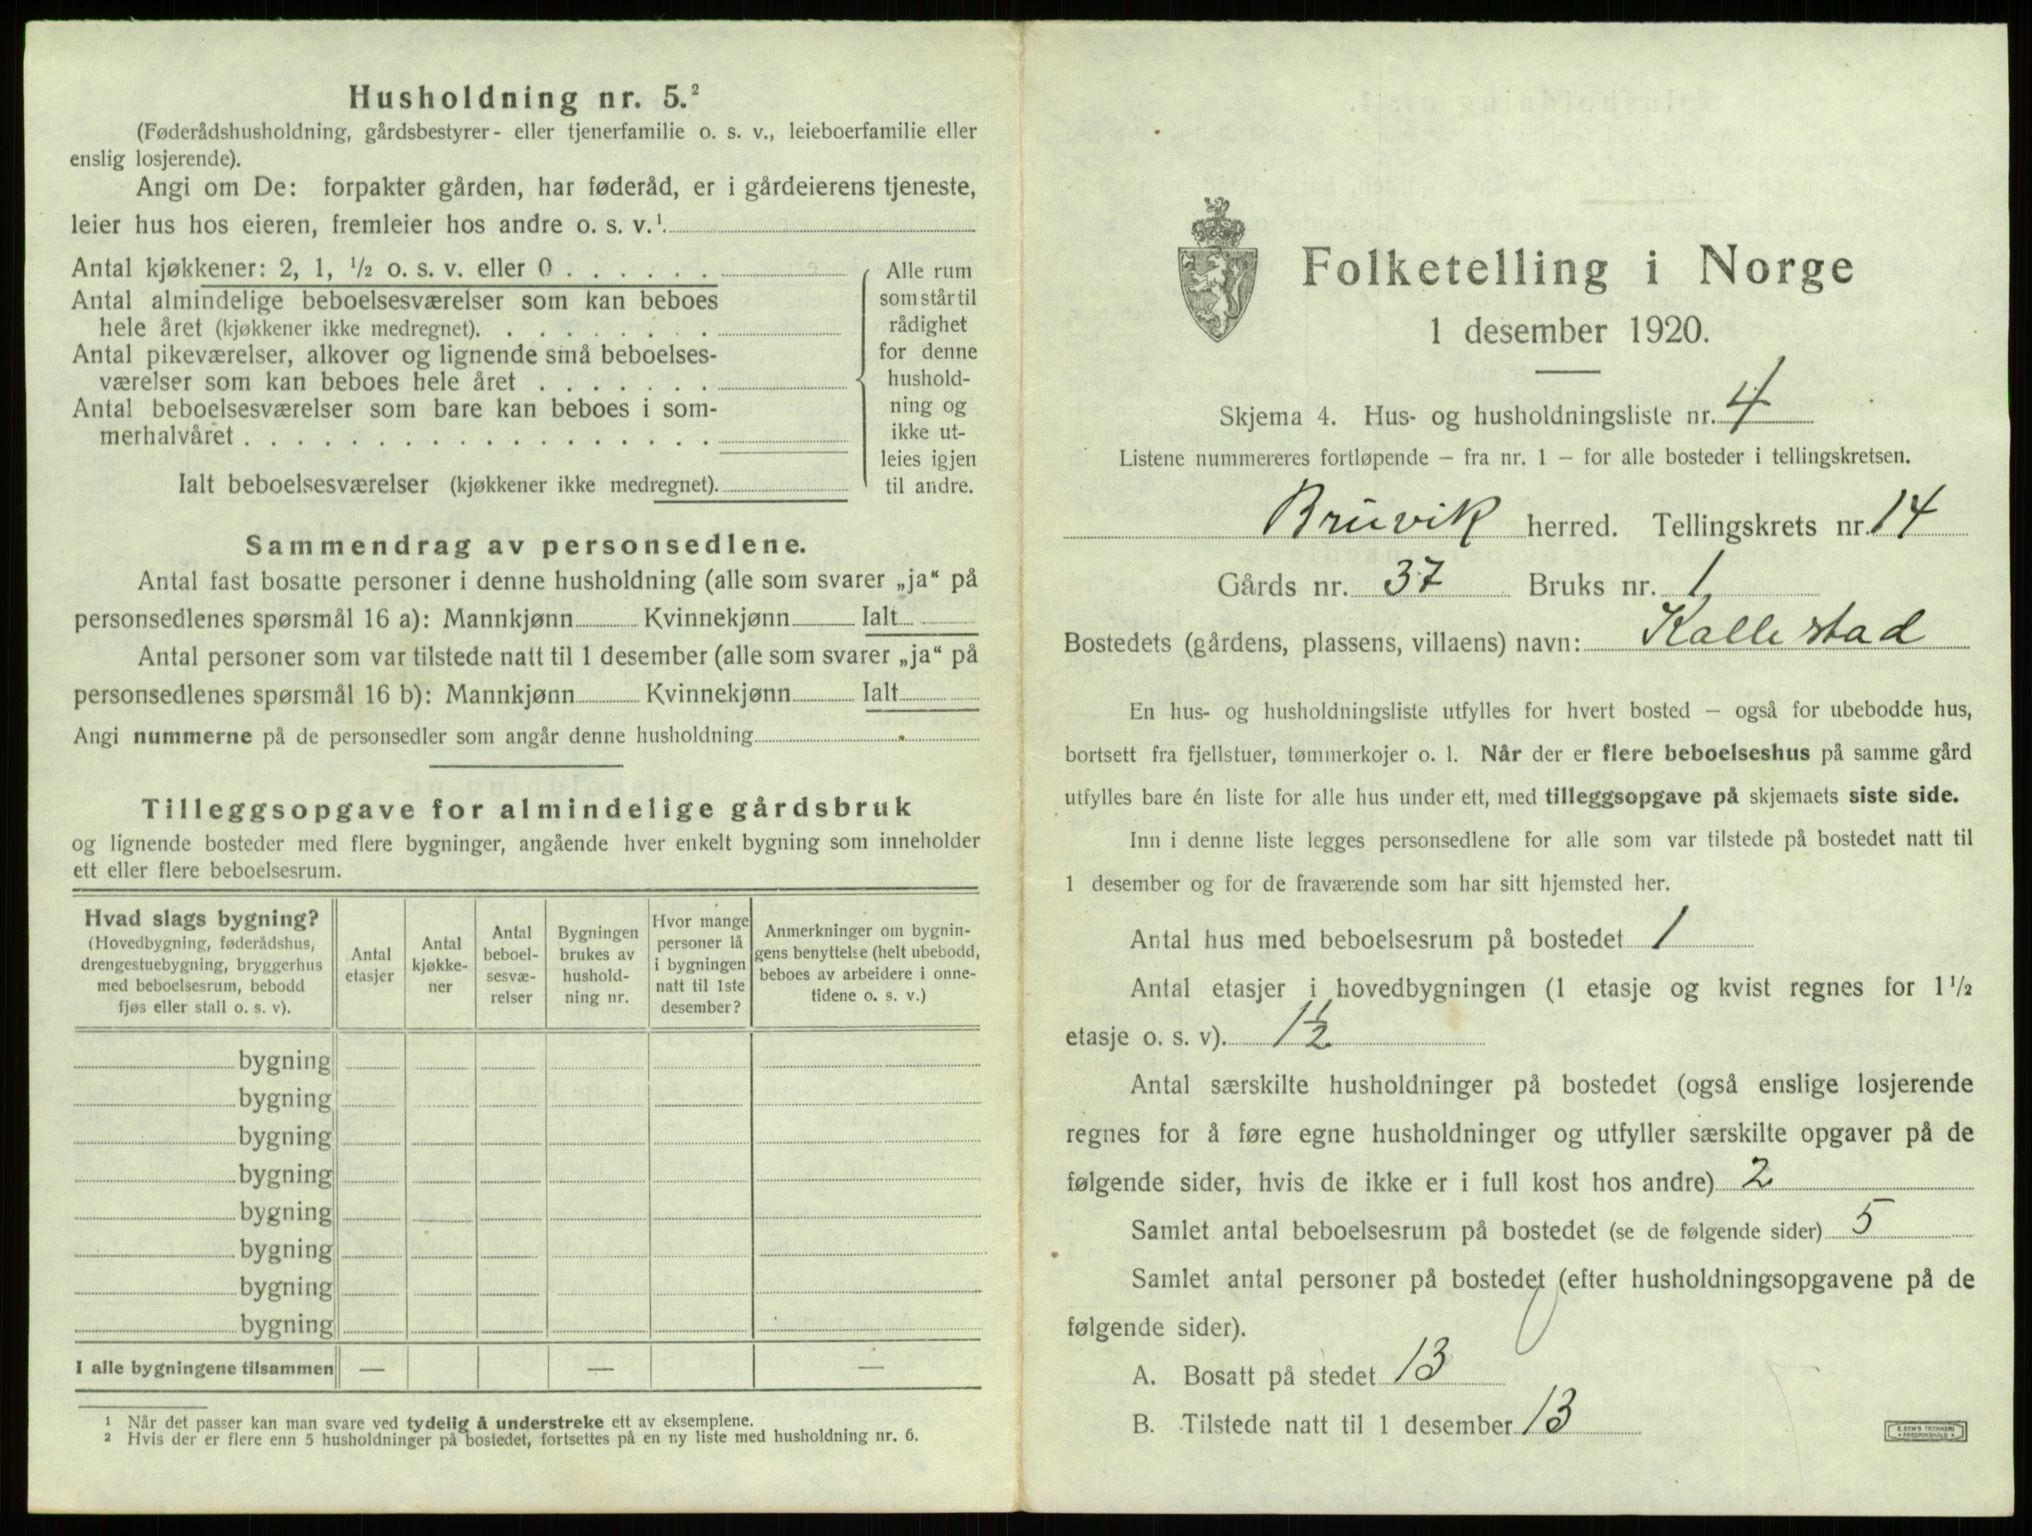 Husholdning nr. 5.²
(Føderådshusholdning, gårdsbestyrer- eller tjenerfamilie o. s. v., leieboerfamilie eller
enslig losjerende).
Angi om De: forpakter gården, har føderåd, er i gårdeierens tjeneste,
leier hus hos eieren, fremleier hos andre o. s. v.¹
Antal kjøkkener: 2, 1, ½ o. s. v. eller 0 . . . . . .
Antal almindelige beboelsesværelser som kan beboes
hele året (kjøkkener ikke medregnet). . . . . . . . .
Antal pikeværelser, alkover og lignende små beboelses-
værelser som kan beboes hele året . . . . . . .
Antal beboelsesværelser som bare kan beboes i som-
merhalvåret . . . . . . . . . . . . . . . . . .
Ialt beboelsesværelser (kjøkkener ikke medregnet).
Alle rum
som står til
rådighet
for denne
hushold-
ning og
ikke ut-
leies igjen
til andre.
Sammendrag av personsedlene.
Antal fast bosatte personer i denne husholdning (alle som svarer „ja“ på
personsedlenes spørsmål 16 a): Mannkjønn Kvinnekjønn Ialt
Antal personer som var tilstede natt til 1 desember (alle som svarer „ja“ på
personsedlenes spørsmål 16 b): Mannkjønn Kvinnekjønn Ialt
Angi nummerne på de personsedler som angår denne husholdning
Tilleggsopgave for almindelige gårdsbruk
og lignende bosteder med flere bygninger, angående hver enkelt bygning som inneholder
ett eller flere beboelsesrum.
Hvad slags bygning?
(Hovedbygning, føderådshus,
drengestuebygning, bryggerhus
med beboelsesrum, bebodd
fjøs eller stall o. s. v).
Antal
etasjer
Antal
kjøkke-
ner
Antal
beboel-
sesvæ-
relser
Bygningen
brukes av
hushold-
ning nr.
Hvor mange
personer lå
i bygningen
natt til 1ste
desember?
Anmerkninger om bygnin-
gens benyttelse (helt ubebodd,
beboes av arbeidere i onne-
tidene o. s. v.)
bygning
bygning
bygning
bygning
bygning
bygning
bygning
bygning
I alle bygningene tilsammen — — —
¹ Når det passer kan man svare ved tydelig å understreke ett av eksemplene.
² Hvis der er flere enn 5 husholdninger på bostedet, fortsettes på en ny liste med husholdning nr. 6.
Folketelling i Norge
1 desember 1920.
Skjema 4. Hus- og husholdningsliste nr. 4
Listene nummereres fortløpende – fra nr. 1 – for alle bosteder i tellingskretsen.
Bruvik herred. Tellingskrets nr. 14
Gårds nr. 37 Bruks nr. 1
Bostedets (gårdens, plassens, villaens) navn: Kallestad
En hus- og husholdningsliste utfylles for hvert bosted – også for ubebodde hus,
bortsett fra fjellstuer, tømmerkojer o. l. Når der er flere beboelseshus på samme gård
utfylles bare én liste for alle hus under ett, med tilleggsopgave på skjemaets siste side.
Inn i denne liste legges personsedlene for alle som var tilstede på bostedet natt til
1 desember og for de fraværende som har sitt hjemsted her.
Antal hus med beboelsesrum på bostedet 1
Antal etasjer i hovedbygningen (1 etasje og kvist regnes for 1½
etasje o. s. v). 1½
Antal særskilte husholdninger på bostedet (også enslige losjerende
regnes for å føre egne husholdninger og utfyller særskilte opgaver på de
følgende sider, hvis de ikke er i full kost hos andre) 2
Samlet antal beboelsesrum på bostedet (se de følgende sider) 5
Samlet antal personer på bostedet (efter husholdningsopgavene på de
følgende sider).
A. Bosatt på stedet 13
B. Tilstede natt til 1 desember 13